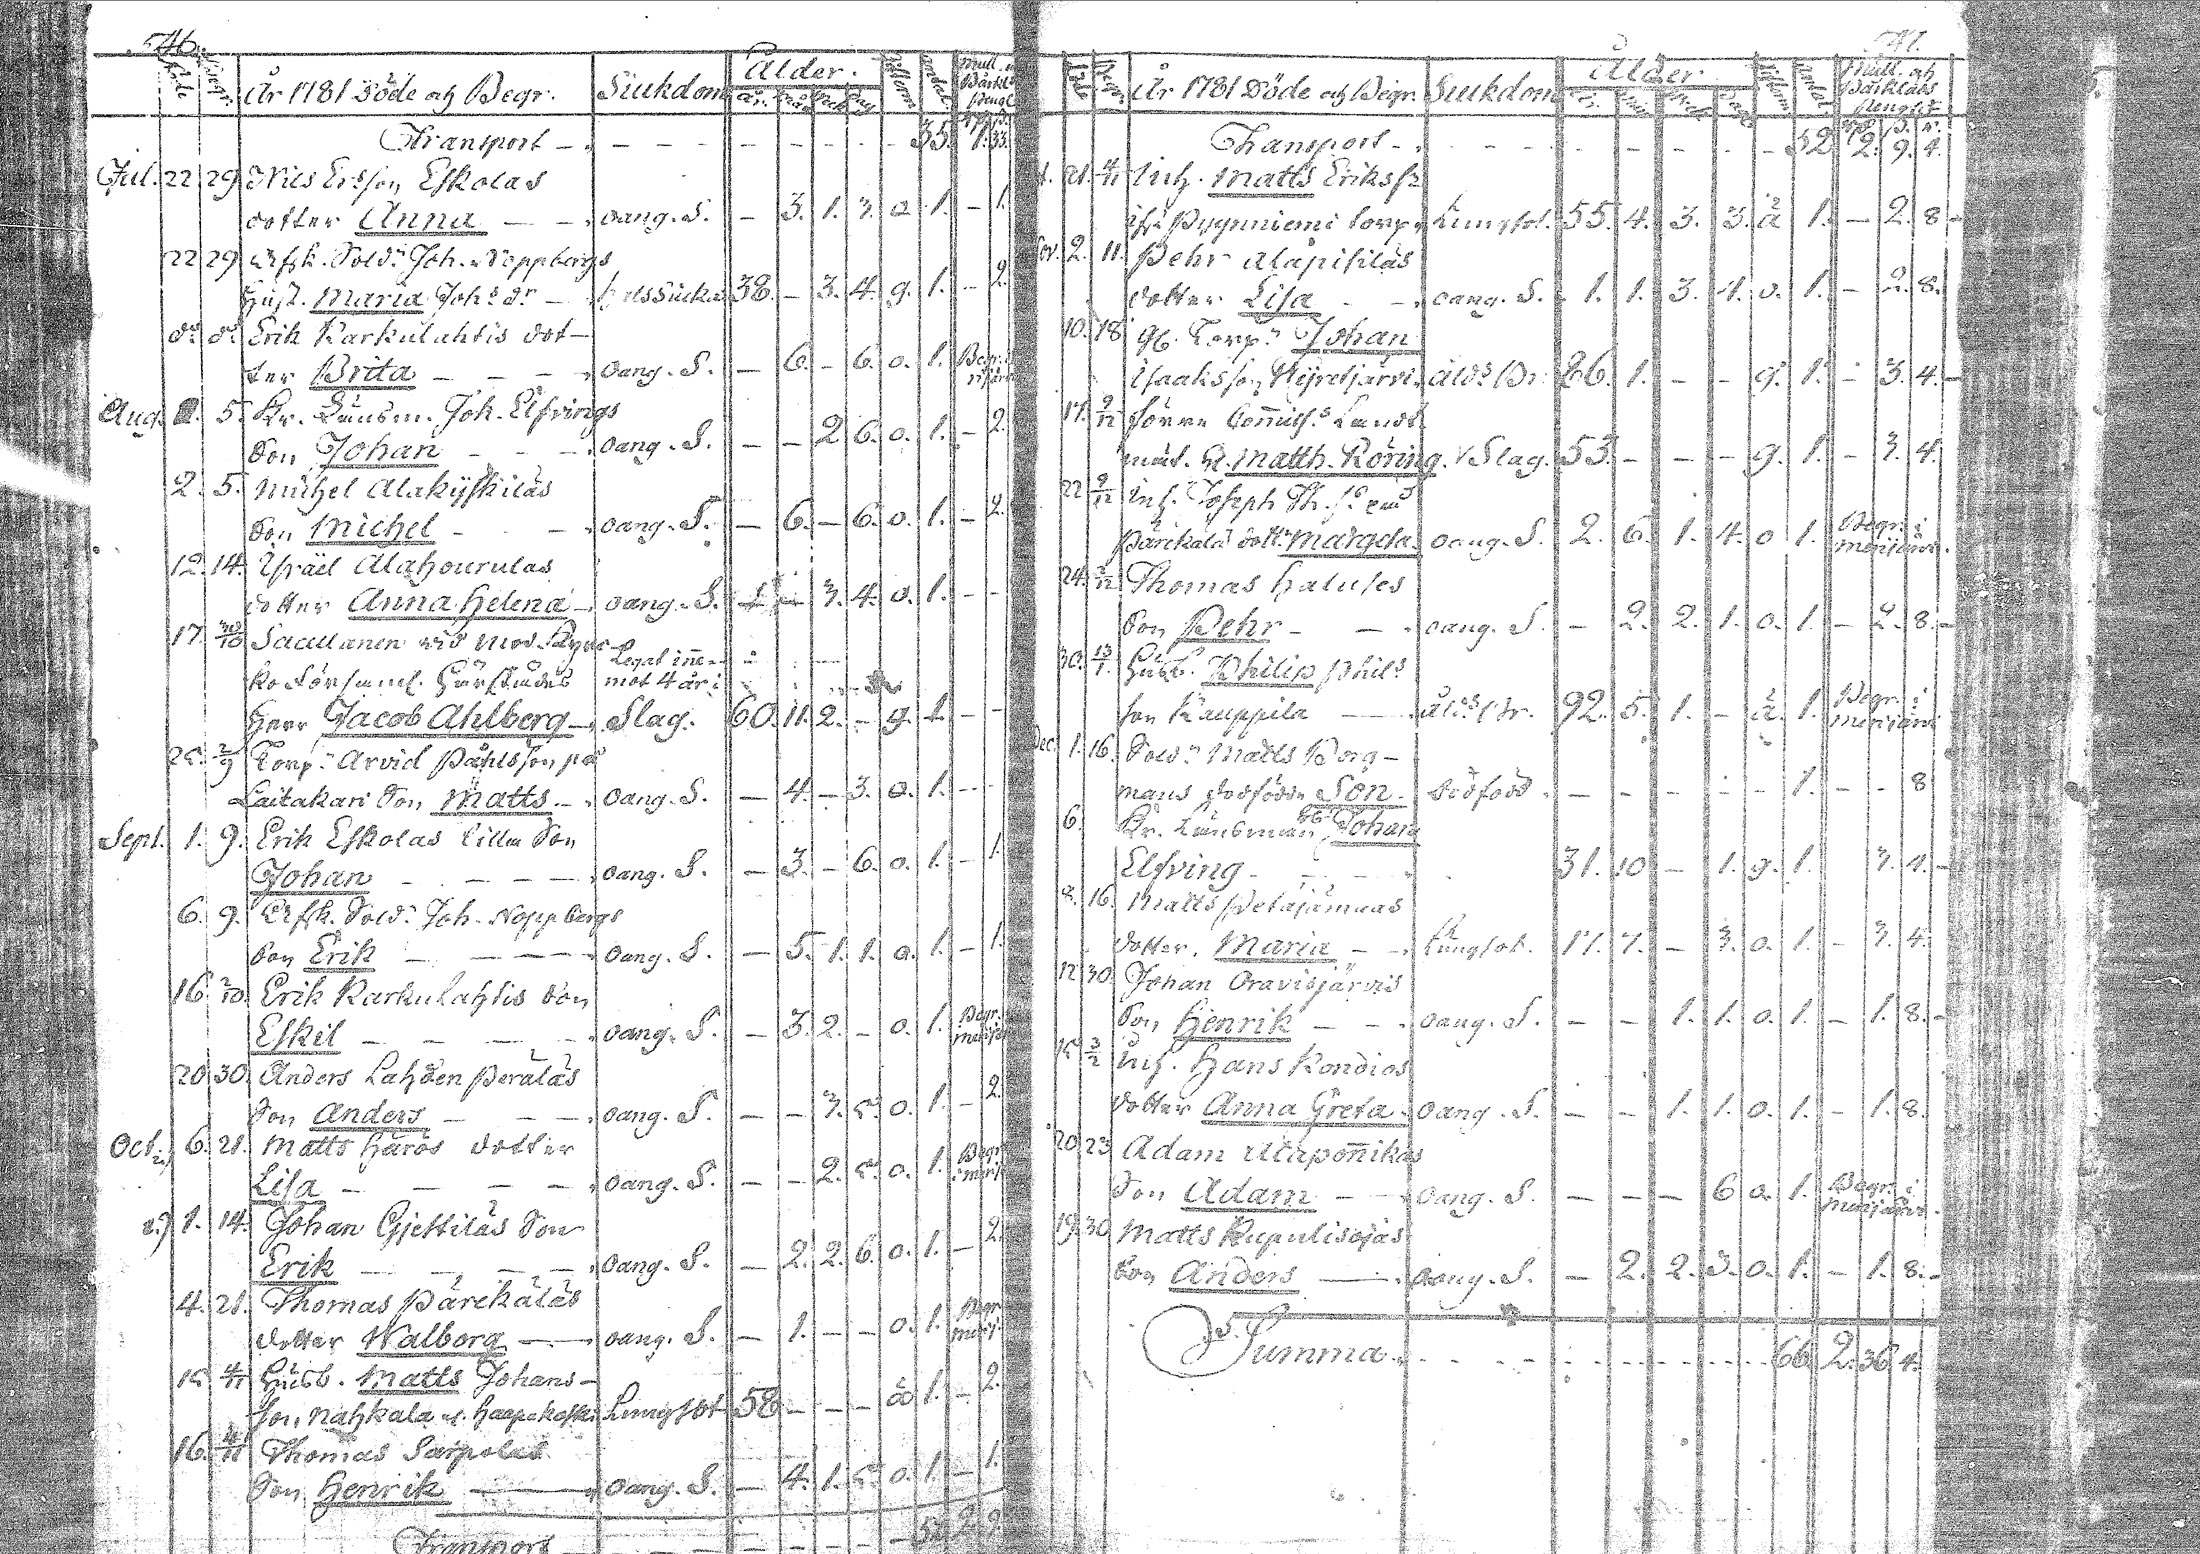 546.
Döde Begr. År 1781 Döde och Begr. Siukdom Ålder. år. mån. vek. dag.
Transport - - - 35. 1. 33.
Jul. 22 29 Nils Ersson Eskolas
dotter Anna - - oang. S. - 3. 1. 3. o. 1. - 1.
22 29 Afsk. Sold:n Joh. Noppbergs
Hust. Maria Joh:s d:r - 38. - 3. 4. g. 1. - 2.
d:o d:o Erik Karkulahtis dot-
ter Brita - - - oang. S. - 6. - 6. o. 1. Begr. i
Aug. 2. 5. Kr. Länsm. Joh. Elfvings
Son Johan - - - oang. S. - - 2 6. o. 1. - 2.
2. 5. Michel Alakyskiläs
Son Michel - - oang. S. - 6. - 6. o. 1. - 2.
12. 14. Israel Alahourulas
dotter Anna Helena - oang. S. 3. 4. o. 1. - -
17. 30/10 Sacellanen vid
ko Församl. Hästädes mot 4 år i
Herr Jacob Ahlberg - Slag. 60. 11. 2. - g. 1. - -
25. 2/9 Torp:n Arvid Påhlsson på
Laitakari Son Matts - oang. S. - 4. - 3. o. 1. - -
Sept. 1. 9. Erik Eskolas lilla Son
Johan - - - oang. S. - 3. - 6. o. 1. - 1.
6. 9. Afsk. Sold:n Joh. Noppbergs
Son Erik - - - oang. S. - 5. 1. 1. o. 1. - 1.
16. 2/10. Erik Karkulahtis Son
Eskil - - - oang. S. - 3. 2. - o. 1. Begr.
20 30. Anders Lahden Peräläs
Son Anders - - - oang. S. - - 3. 5. o. 1. - 2.
Oct. 6. 21. Matts Häros dotter
Lisa - - - oang. S. - - 2. 5. o. 1. Begr.
1. 14. Johan Gjettiläs Son
Erik - - - oang. S. - 2. 2. 6. o. 1. - 2.
4. 21. Thomas Pärekäläs
dotter Walborg - oang. S. - 1. - - o. 1. Begr.
15. 4/11 Husb. Matts Johans-
son Nahkala Lungsot 58 - - - 1. - 2.
16. 4/11 Thomas Sarpolas
Son Henrik - oang. S. - 4. 1. 5. o. 1. - 1.
Transport - - - 52. 2. 9.
År 1781 Döde och Begr. Siukdom Ålder. Mull. och
Bårklädes
peng:r
Transport - - - 52 2. 9. 4.
21. 4/11 Inh. Matts Erikss:n
Pyynniemi torp Lungsot. 55. 4. 3. 3. ä 1. - 2. 8 -
Nov. 2. 11. Pehr Alapihläs
dotter Lisa - - oang. S. 1. 1. 3. 4. o. 1. - 2. 8.
10. 18 Torp:n Johan
Isaaksson ålds Br. 86. 1. - - g. 1. - 3. 4. -
17. 9/12 Förre Landt
mät. H. Matth. Röring. Slag. 53. - - - g. 1. - 3. 4.
22 9/12 Inh. Joseph
Pärekälä dott. Margeta. oang. S. 2. 6. 1. 4. o 1. Begr. i
Merijärvi.
24. Thomas Haluses
Son Pehr - - oang. S. - 2. 2. 1. o. 1. - 2. 8. -
30. 13/1. Husb. Philip Phils
son Kauppila - ålds Br. 92. 5. 1. - ä. 1. Begr. i
Merijärvi
Dec. 1. 16. Sold:n Matts Borg-
mans dödfödde Son - dödföd. - - - - - 1. - - 8
6. Kr. Länsman Johan
Elfving - - - 31. 10 - 1. g. 1. 3. 4. -
8. 16. Matts Petäjämaas
dotter. Maria - - Lungsot. 17. 7. - 3. o. 1. - 3. 4.
12 30. Johan Oravisjärvis
Son Henrik - - oang. S. - - 1. 1. o. 1. - 1. 8. -
15 3/2 Inh. Hans Kondios
dotter Anna Greta. oang. S. - - 1. 1. o. 1. - 1. 8.
20 23 Adam
Son Adam - - oang. S. - - - 6 o. 1. Begr. i
Merijärvi.
19 30 Matts Kupulisojas
Son Anders - oang. S. - 2. 2. 3. o. 1. - 1. 8. -
Summa. - - - 66 2. 36 4.